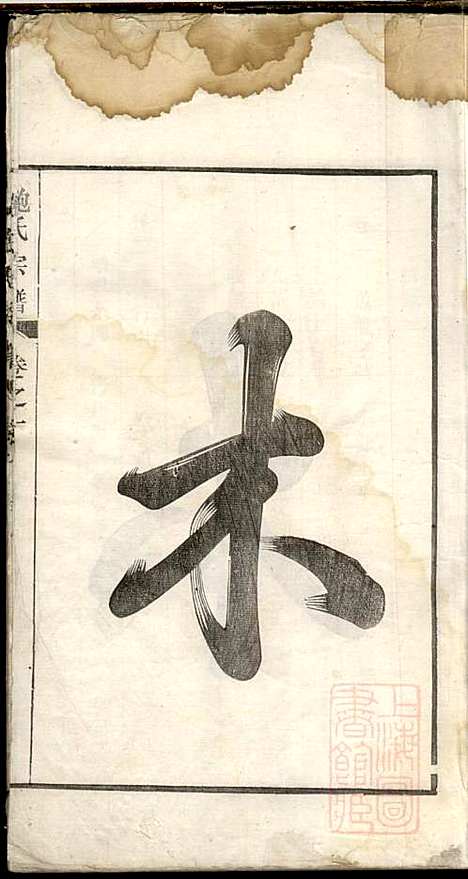 木
鮑氏宗譜
卷之一
上海圖書館藏